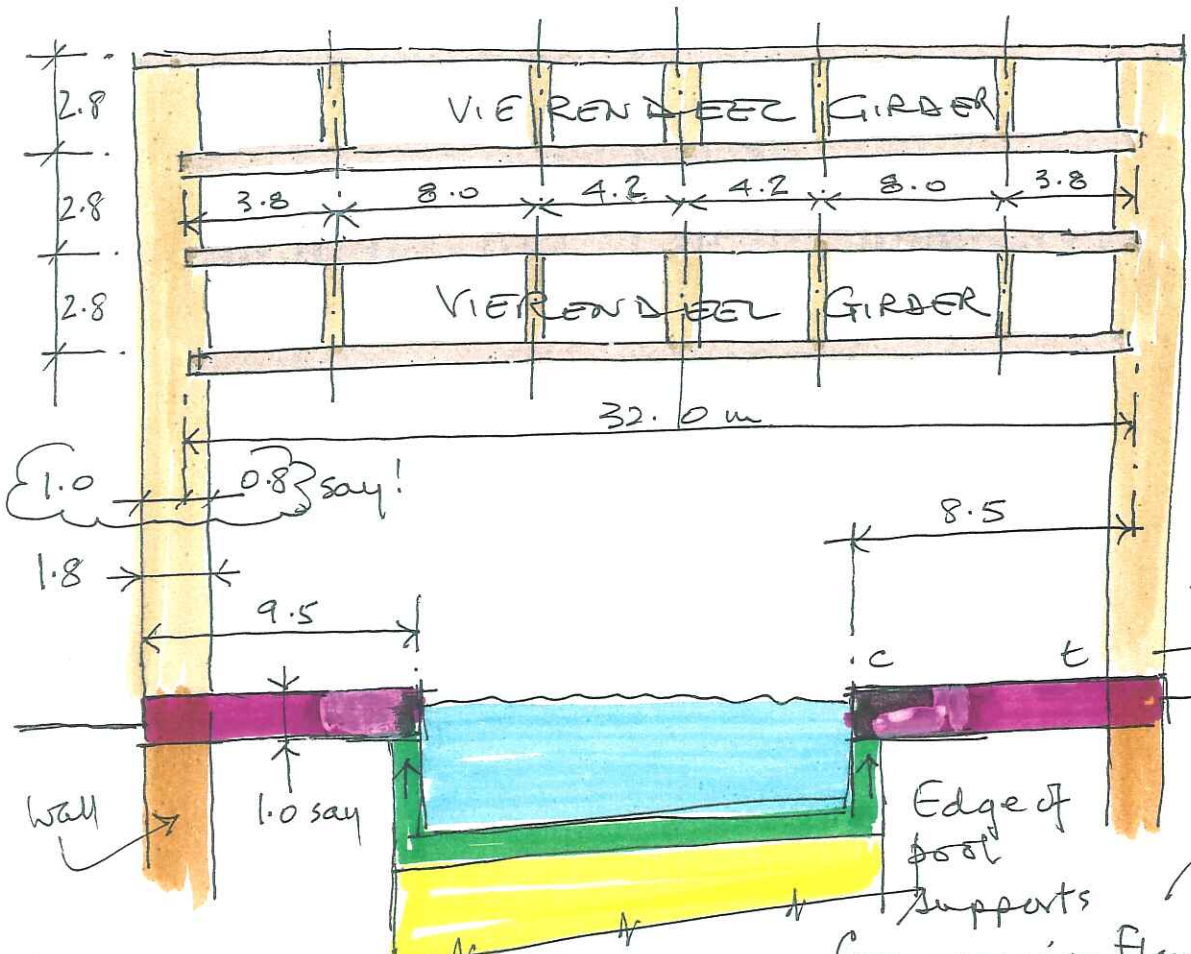 2.8
VIERENDEEL GIRDER
2.8
3.8 8.0 4.2 4.2 8.0 3.8
2.8
VIERENDEEL GIRDER
32.0 m
1.0 0.8 say!
8.5
1.8
9.5
c t
Wall
1.0 say
Edge of
pool
supports